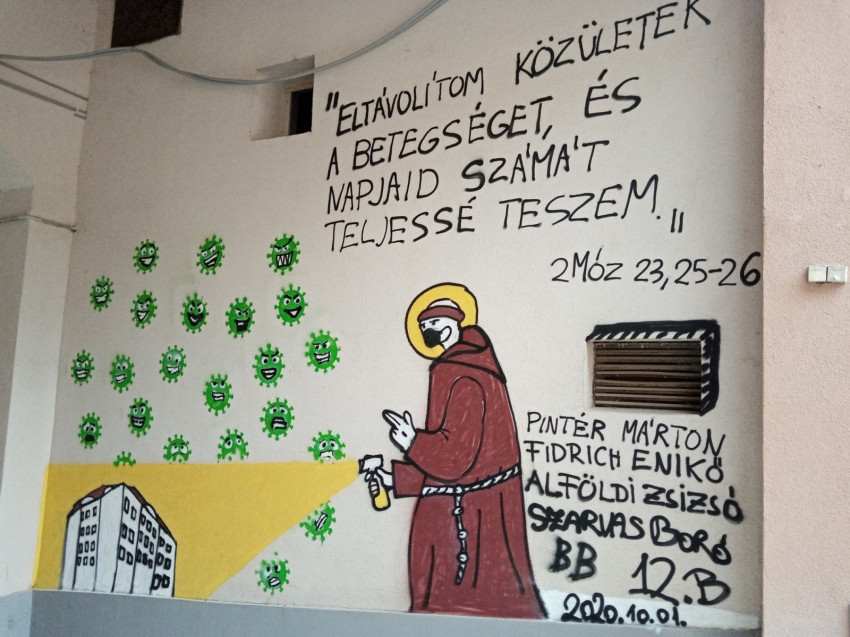 "ELTÁVOLÍTOM KÖZÜLETEK
A BETEGSÉGET, ÉS
NAPJAID SZÁMÁT
TELJESSÉ TESZEM."
2 MÓZ 23, 25-26
PINTÉR MÁRTON
FIDRICH ENIKŐ
ALFÖLDI ZSIZSÓ
SZARVAS BORÓ
BB 12.B
2020.10.01.